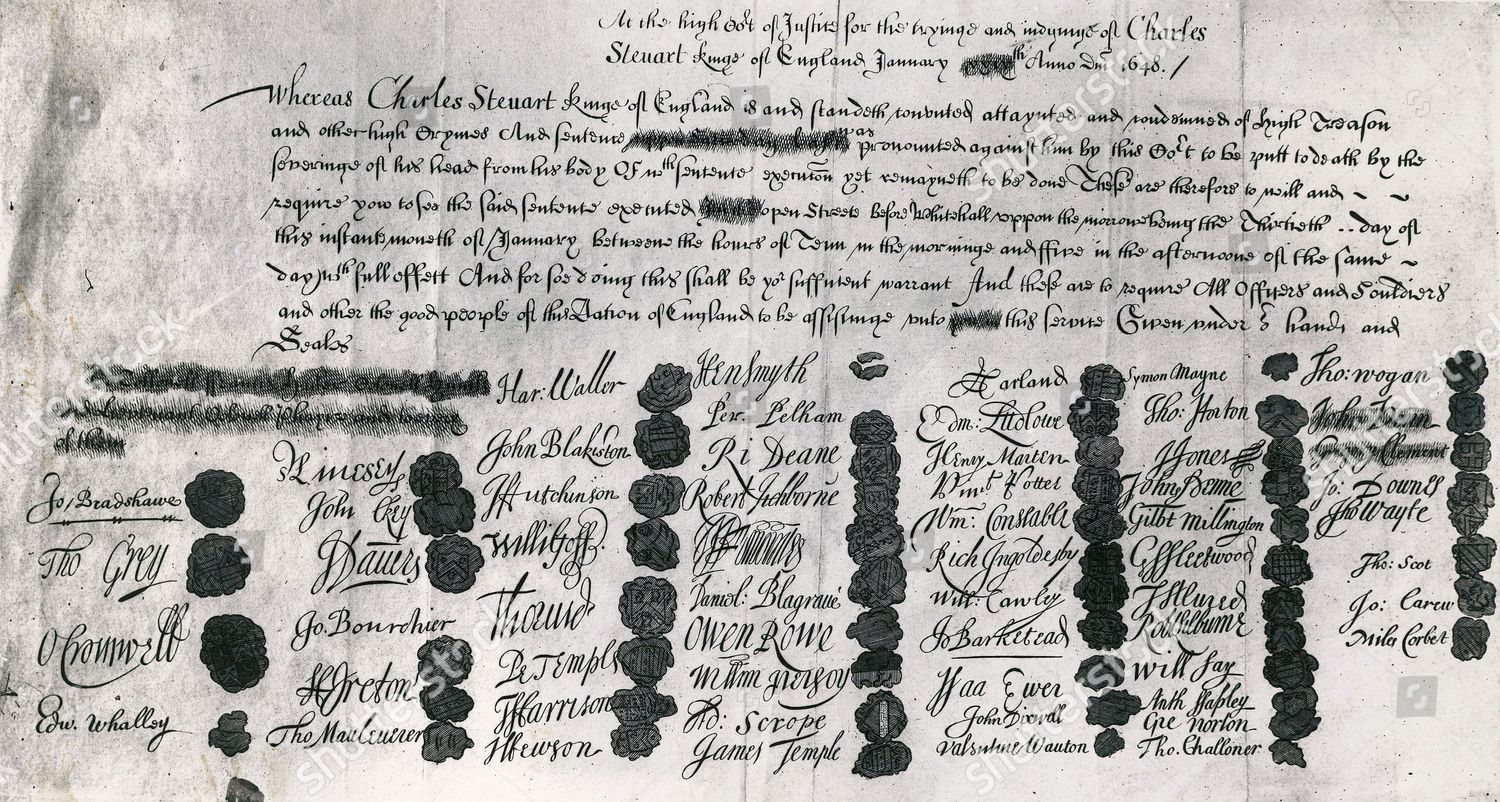 At the high Cort of Justice for the tryinge and iudginge of Charles
Steuart Kinge of England January th Anno Dm̄ 1648./
Whereas Charles Steuart Kinge of England is and standeth convicted attaynted and condemned of High Treason
and other high Crymes And sentence was pronounced against him by this Cort to be putt to death by the
severinge of his head from his body Of wch sentence execucōn yet remayneth to be done These are therefore to will and
require you to see the said sentence executed open Streete before Whitehall uppon the morrowe being the Thirtieth day of
this instante moneth of January betweene the hours of Tenn in the morninge and ffive in the afternoone of the same
day wth full effect And for soe doing this shall be yor sufficient warrant And these are to require All Officers and Souldiers
and other the good people of this Nation of England to be assistinge unto this service Given under or hands and
Seales
Jo Bradshawe
Tho Grey
O Cromwell
Edw. Whalley
M Livesey
John Okey
J Dauers
Jo. Bourchier
H Ireton
Tho Mauleverer
Har: Waller
John Blakiston
J Hutchinson
Willi Goff
Tho Pride
Pe Temple
T Harrison
J Hewson
Hen Smyth
Per. Pelham
Ri Deane
Robert Tichborne
Daniel: Blagrave
Owen Rowe
Ad: Scrope
James Temple
A Garland
Edm: Ludlowe
Henry Marten
Vinct Potter
Wm: Constable
Rich Ingoldesby
Will: Cawley
Jo Barkstead
Isaa Ewer
John Dixwell
Valentine Wauton
Symon Mayne
Tho: Horton
J Jones
John Penne
Gilbt Millington
G Fleetwood
J Alured
Rob Lilburne
Will Say
Anth Stapley
Gre Norton
Tho. Challoner
Tho: Wogan
John Venn
Gregory Clement
Jo: Downes
Tho Wayte
Tho: Scot
Jo: Carew
Miles Corbet
shutterstock